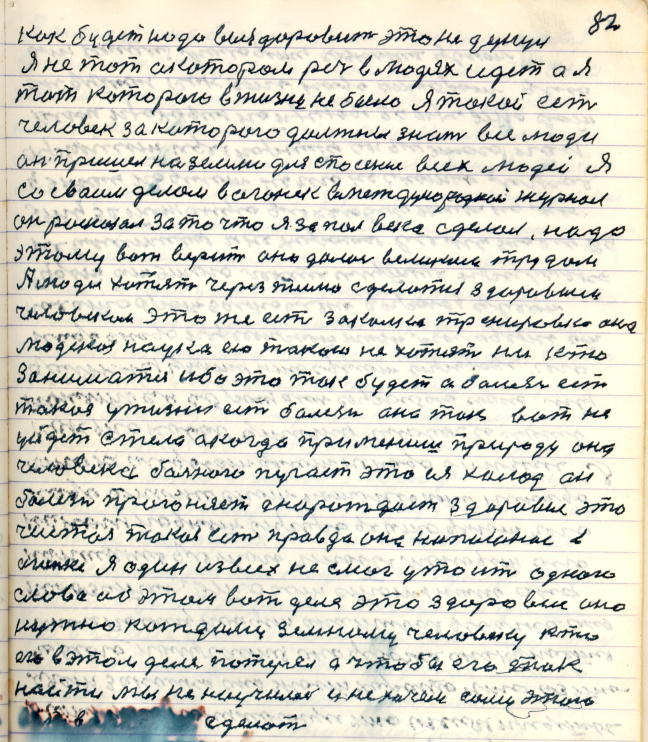 82
как будет надо выздоровит это не деньги
Я не тот о котором реч в людях идет а я
тот которого в жизне не было Я такой ест
человек за которого должны знат все люди
он пришел на землю для спосение всех людей Я
со своим делом в огонек в международной журнал
он росказал за то что я за пол века сделал, надо
этому вот верит оно далос великим трудом
А люди хотят через тело сделатся здоровым
человеком это же ест закалка тренировка она
людская наука ею такою не хотят ни кто
заниматся ибо это так будет а болезн ест
такая у жизни ест болезн она так вот не
уйдет с тела а когда применим природу она
человека болного пугает это ся холод он
болезн прогоняет а нарождает здоровье это
чистая такая ест правда она написоная в
огонке Я один из всех не смог утоит одного
слова об этом вот деле это здоровье оно
нужно каждому земному человеку кто
его в этом деле потерял а чтобы его так
найти мы не научилис и не хочем сами этого
сделат